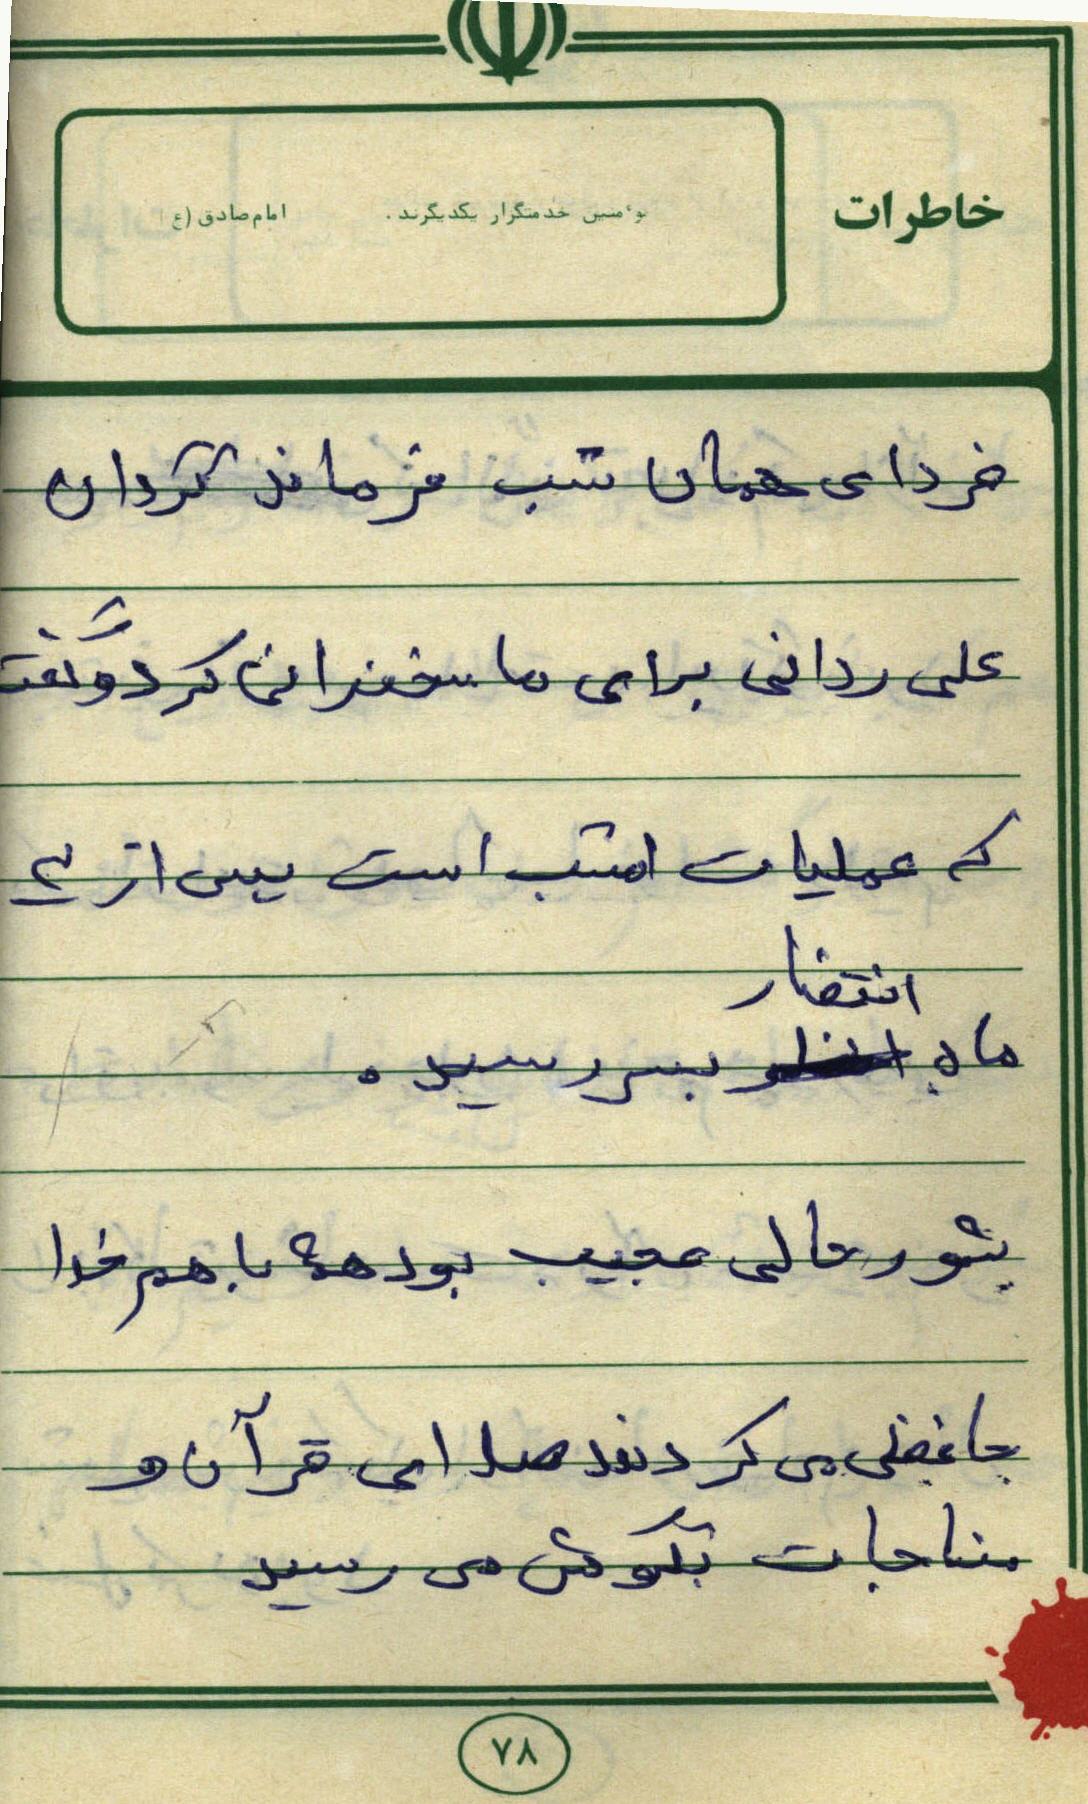 خاطرات
مومنین خدمتگزار یکدیگرند . امام صادق (ع)
فردای همان شب فرمانده گردان
علی ردانی برای ما سخنرانی کرد و گفت
که عملیات امشب است پس از ۲
انتضار
ماه بسر رسید .
شور حالی عجیب بود همه با هم خدا
حافظی می کردند صدای قرآن و
مناجات بگوش می رسید
۷۸